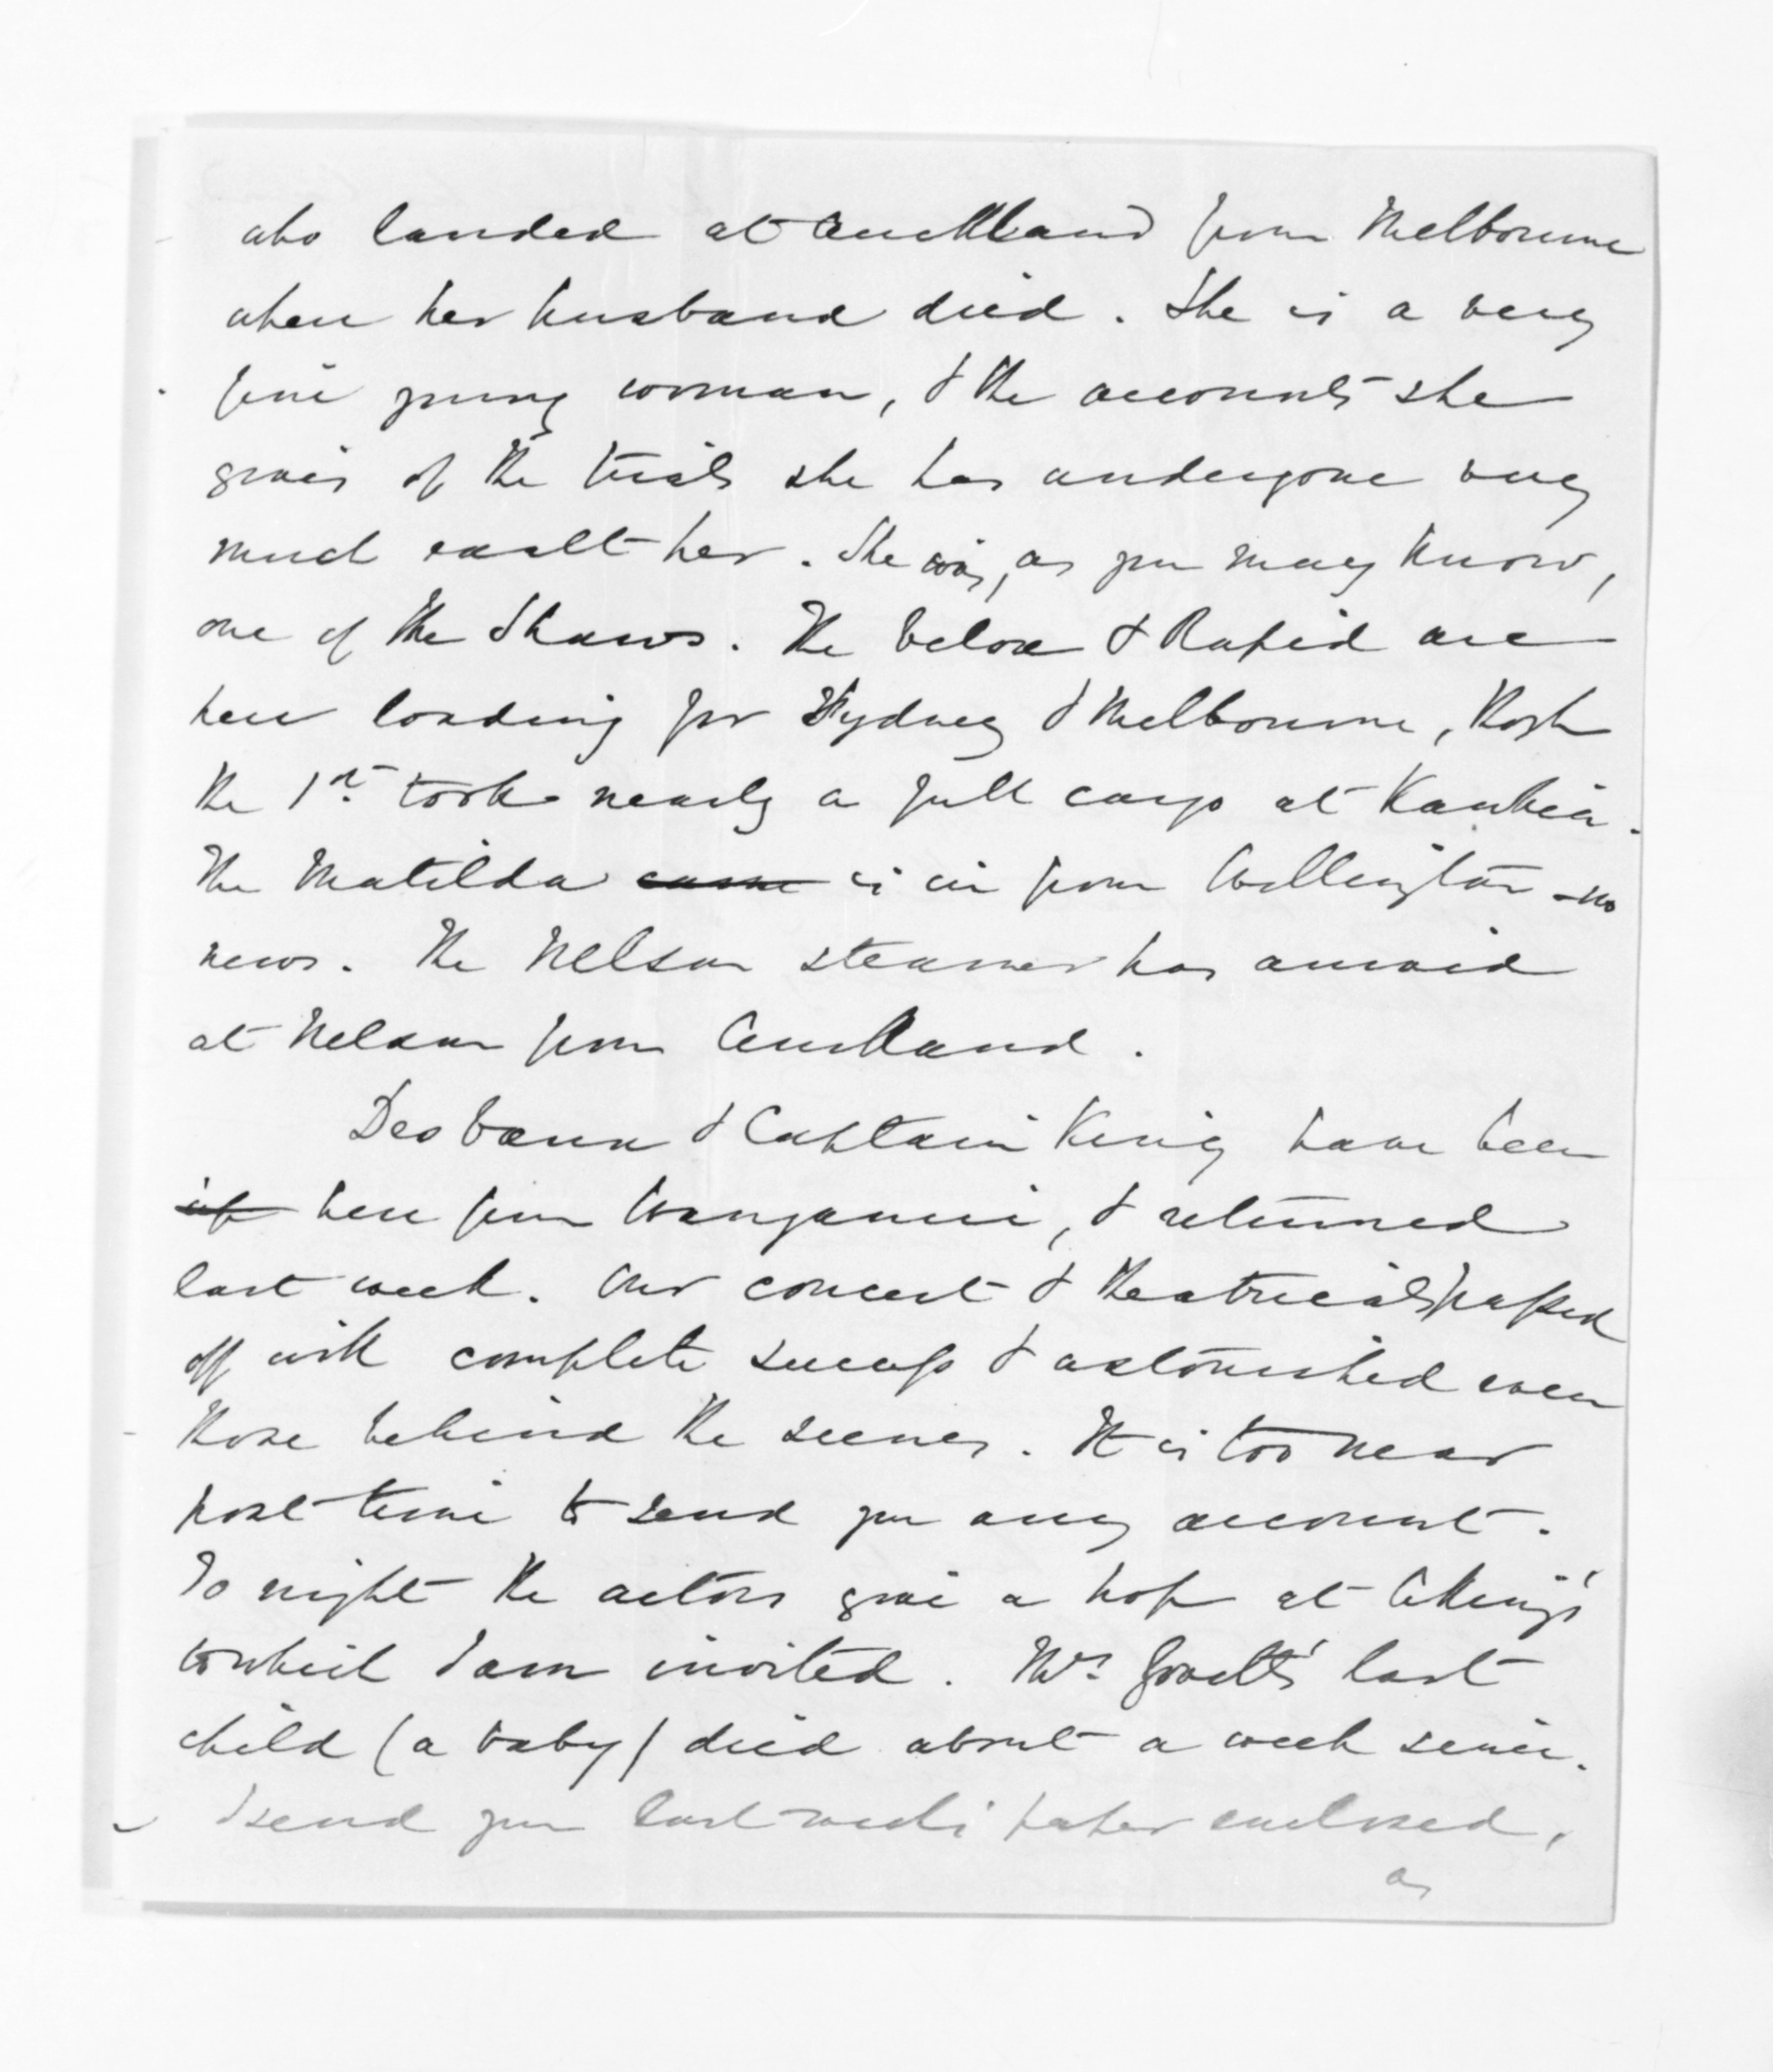 who landed at Auckland from Melbourne
when her husband died. She is a very
fine young woman, & the accounts she
gives of the trials she has undergone very
much exalt her. She was, as you may know,
one of the Shaws. The Velox & Rapid are
here loading for Sydney & Melbourne, tho'
the 1st. took nearly a full cargo at Kawhia.
The Matilda came is in from Wellington - no
news. The Nelson steamer has arrived
at Nelson from Auckland.
Des Voeux & Captain King have been
up here from Wanganui, & returned
last week. Our concert & theatricals passed
off with complete success & astonished even
those behind the scenes. It is too near
post time to send you any account.
To night the actors give a hop at
to which I am invited. Mrs. Govett's last
child (a baby) died about a week since.
I send you last week's paper enclosed,
as